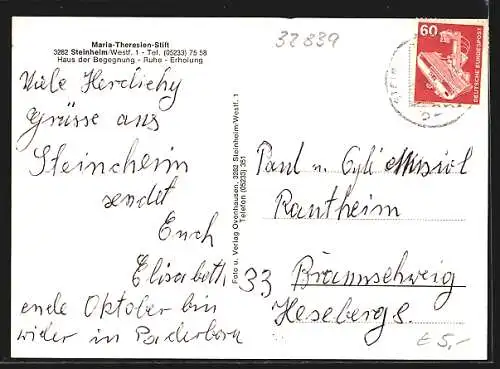 Maria-Theresien-Stift
3282 Steinheim/Westf. 1 - Tel. (05233) 75 58
Haus der Begegnung - Ruhe - Erholung
32839
60
DEUTSCHE BUNDESPOST
Viele Herzliche
Grüsse aus
Steincheim
sendet
Euch
Elisabeth
ende Oktober bin
wider in Paderborn
Foto u. Verlag Ovenhausen, 3282 Steinheim/Westf. 1
Telefon (05233) 351
Paul u.
Rantheim
33 Braunschweig
Hesebergs.
€ 5,-